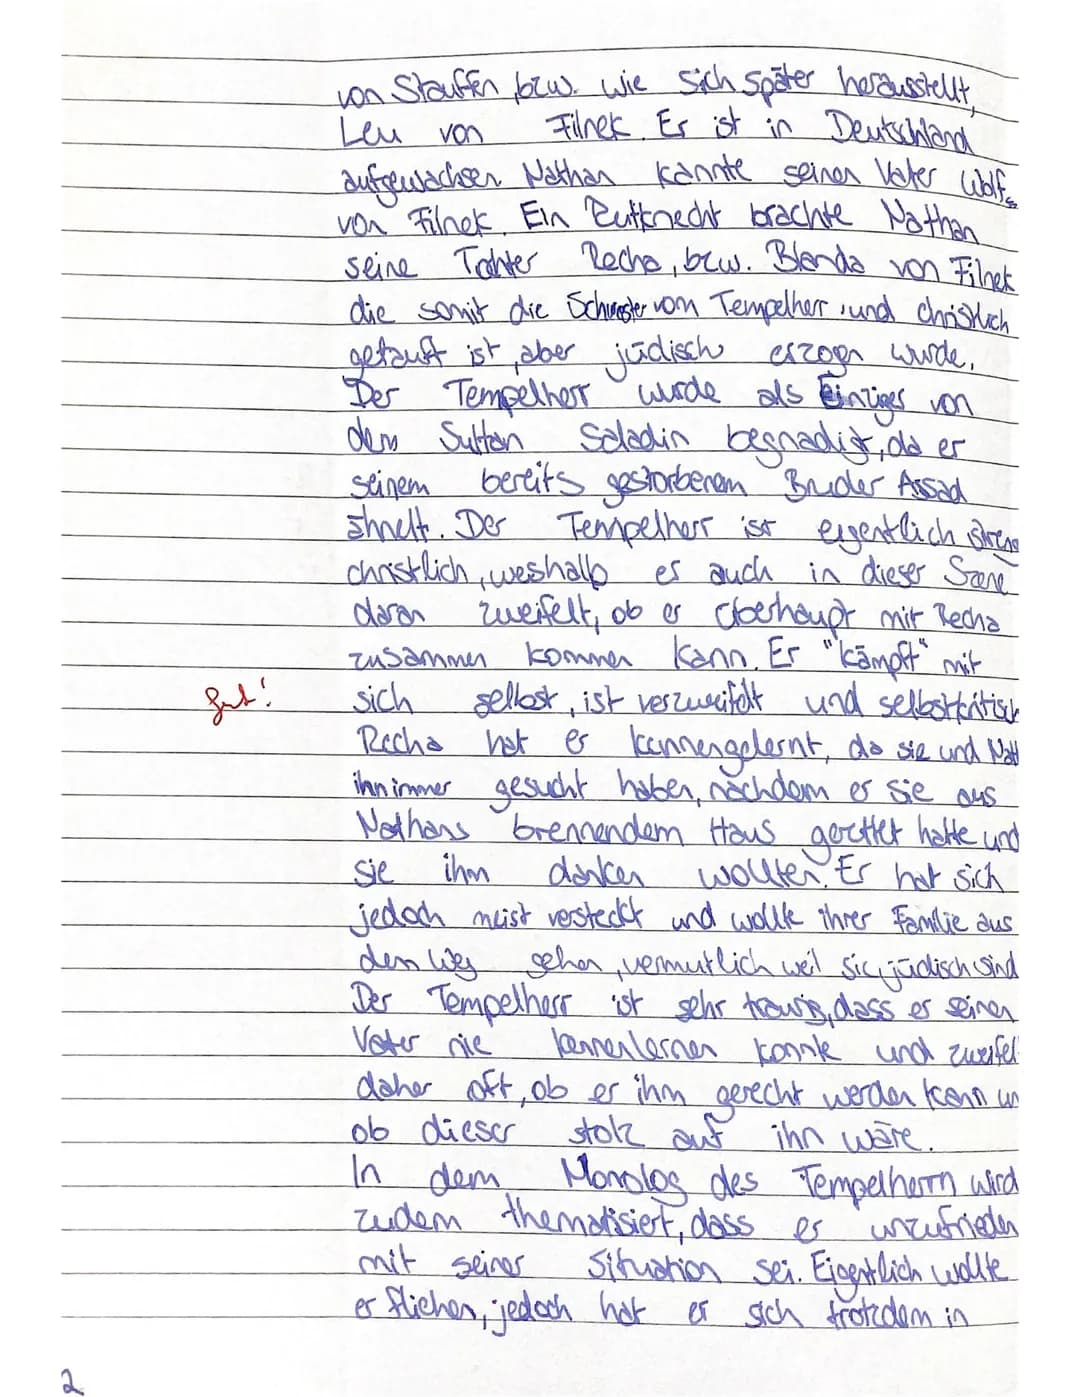 von Stauffen bzw. wie sich später herausstellt,
Leu von Filnek. Er ist in Deutschland
aufgewachsen. Nathan kannte seinen Vater Wolf
von Filnek. Ein Reitknecht brachte Nathan
seine Tochter Recha, bzw. Blanda von Filnek
die somit die Schwester vom Tempelherr, und christlich
getauft ist, aber jüdisch erzogen wurde.
Der Tempelherr wurde als Einziges von
dem Sultan Saladin begnadigt, da er
seinem bereits gestorbenem Bruder Assad
ähnelt. Der Tempelherr ist eigentlich streng
christlich, weshalb er auch in dieser Szene
daran zweifelt, ob er überhaupt mit Recha
zusammen kommen kann. Er "kämpft" mit
gut! sich selbst, ist verzweifelt und selbstkritisch
Recha hat er kennengelernt, da sie und Nath
ihn immer gesucht haben, nachdem er sie aus
Nathans brennendem Haus gerettet hatte und
sie ihm danken wollten. Er hat sich
jedoch meist versteckt und wollte ihrer Familie aus
dem Weg gehen, vermutlich weil sie jüdisch sind
Der Tempelherr ist sehr traurig, dass er seinen
Vater nie kennenlernen konnte und zweifel
daher oft, ob er ihm gerecht werden kann un
ob dieser stolz auf ihn wäre.
In dem Monolog des Tempelherrn wird
zudem thematisiert, dass er unzufrieden
mit seiner Situation sei. Eigentlich wollte
er fliehen, jedoch hat er sich trotzdem in
2